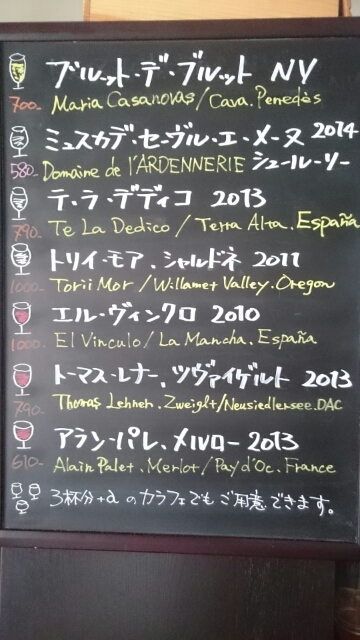 ブルット・デ・ブルット NV
700- Maria Casanovas / Cava. Penedès
ミュスカデ・セーヴル・エ・メーヌ 2014
580- Domaine de l'ARDENNERIE シュール・リー
テ・ラ・デディコ 2013
790- Te La Dedico / Terra Alta. España
トリイ・モア. シャルドネ 2011
1000- Torii Mor / Willamet Valley. Oregon
エル・ヴィンクロ 2010
1000- El Vinculo / La Mancha. España
トーマス・レナー. ツヴァイゲルト 2013
790- Thomas Lehner. Zweiglt / Neusiedlersee. DAC
アラン・パレ. メルロー 2013
610- Alain Palet. Merlot / Pay d'Oc. France
3杯分+α のカラフェでもご用意できます。